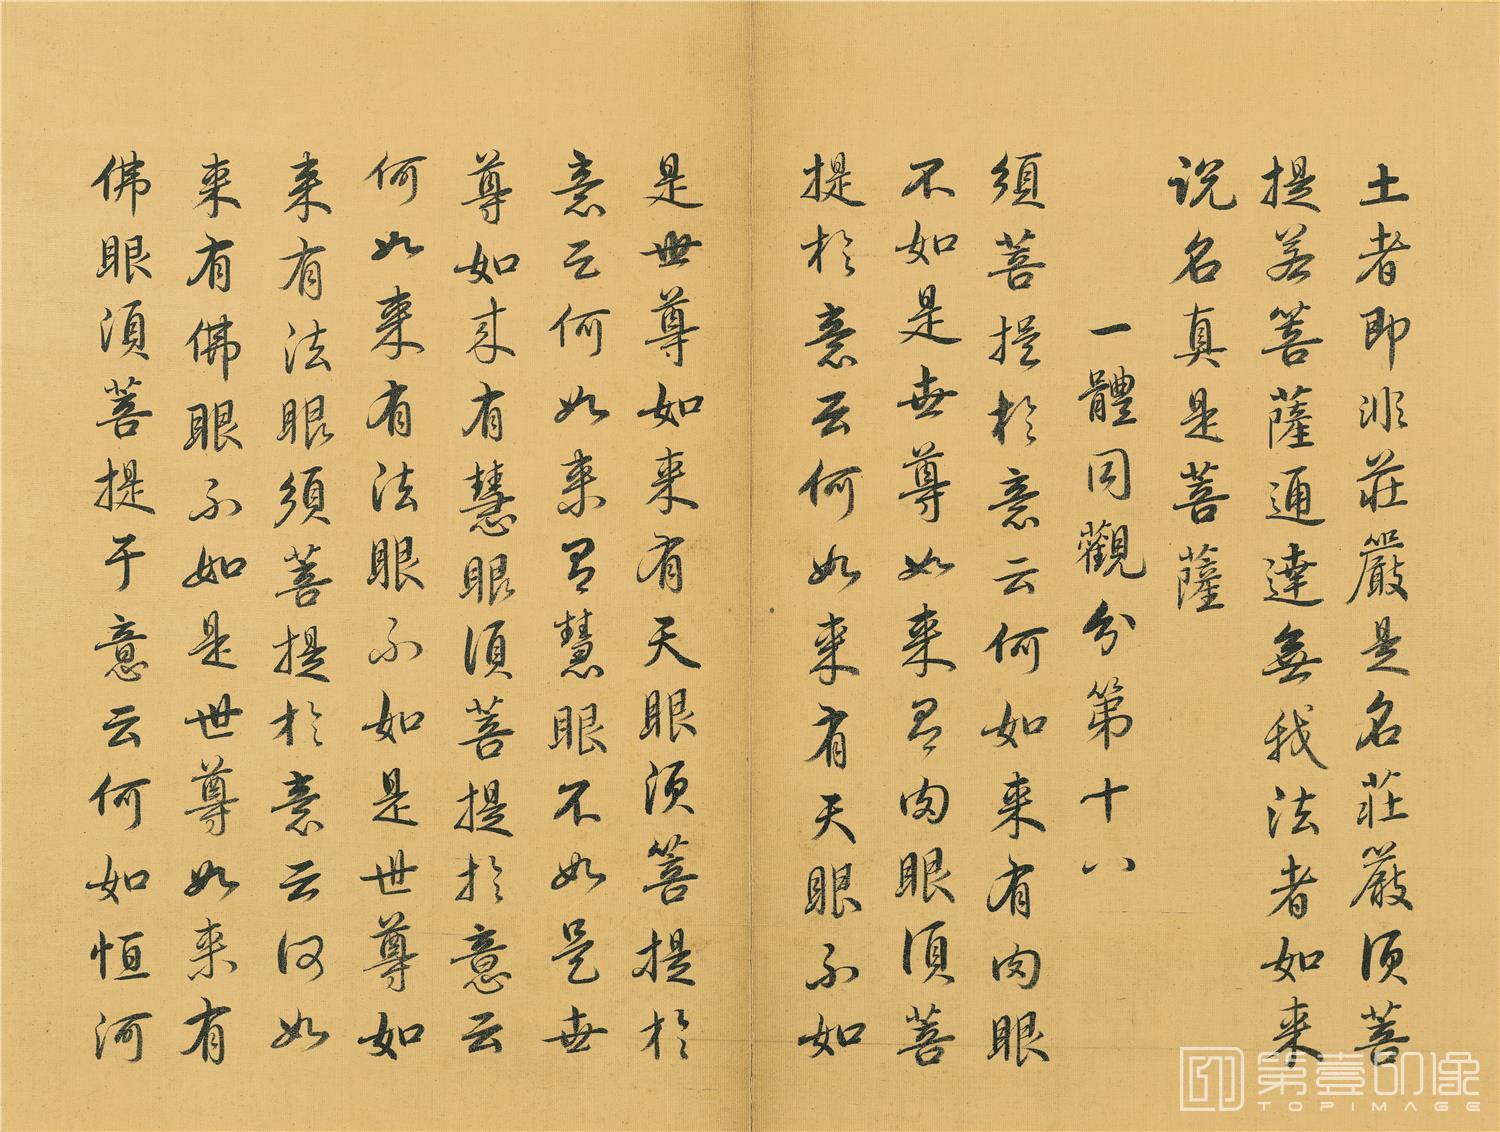 土者即非莊嚴是名莊嚴須菩
提若菩薩通達無我法者如来
説名真是菩薩
一體同觀分第十八
須菩提於意云何如来有肉眼
不如是世尊如来有肉眼須菩
提於意云何如来有天眼不如
是世尊如来有天眼須菩提於
意云何如来有慧眼不如是世
尊如来有慧眼須菩提於意云
何如来有法眼不如是世尊如
来有法眼須菩提於意云何如
来有佛眼不如是世尊如来有
佛眼須菩提于意云何如恒河
第壹印像
TOPIMAGE